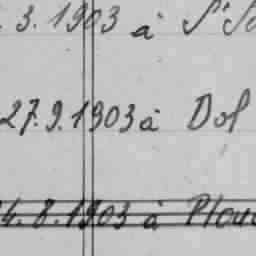 . 3. 1903 à St
27.9.1903 à Dol
4. 8. 1903 à Plou